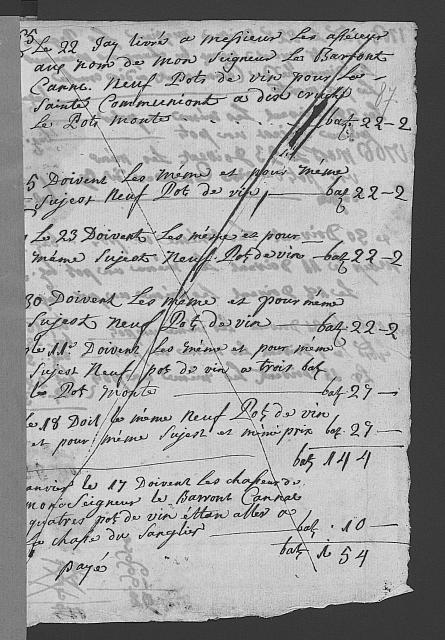 35
Le 22 Jay livré a messieur Les assieur
aux nom de mon Seigneur Le Barront
Canac. Neuf Pots de vin pour Les
Sainte Communiont a dix creuht
Le Pots monte . . . . . . batz 22-2
87
5 Doivent Les même et pour même
Sujest Neuf Pots de vin — batz 22-2
Le 23 Doivent Les même et pour
même Sujest Neuf Pots de vin — batz 22-2
30 Doivent Les même et pour même
Sujest Neuf Pots de vin — batz 22-2
le 11e Doivent Les même et pour même
Sujest Neuf pots de vin a trois batz
Les Pots monte — batz 27 —
Le 18 Doit le même Neuf Pots de vin
et pour même Sujest et même prix batz 27 —
batz 144
anvier le 17 Doivent Les chaseur de
monseigneur Le Barront Cannac
quatres pots de vin étten aller a
La chasse du Sanglier — batz 10 —
batz 154
payé